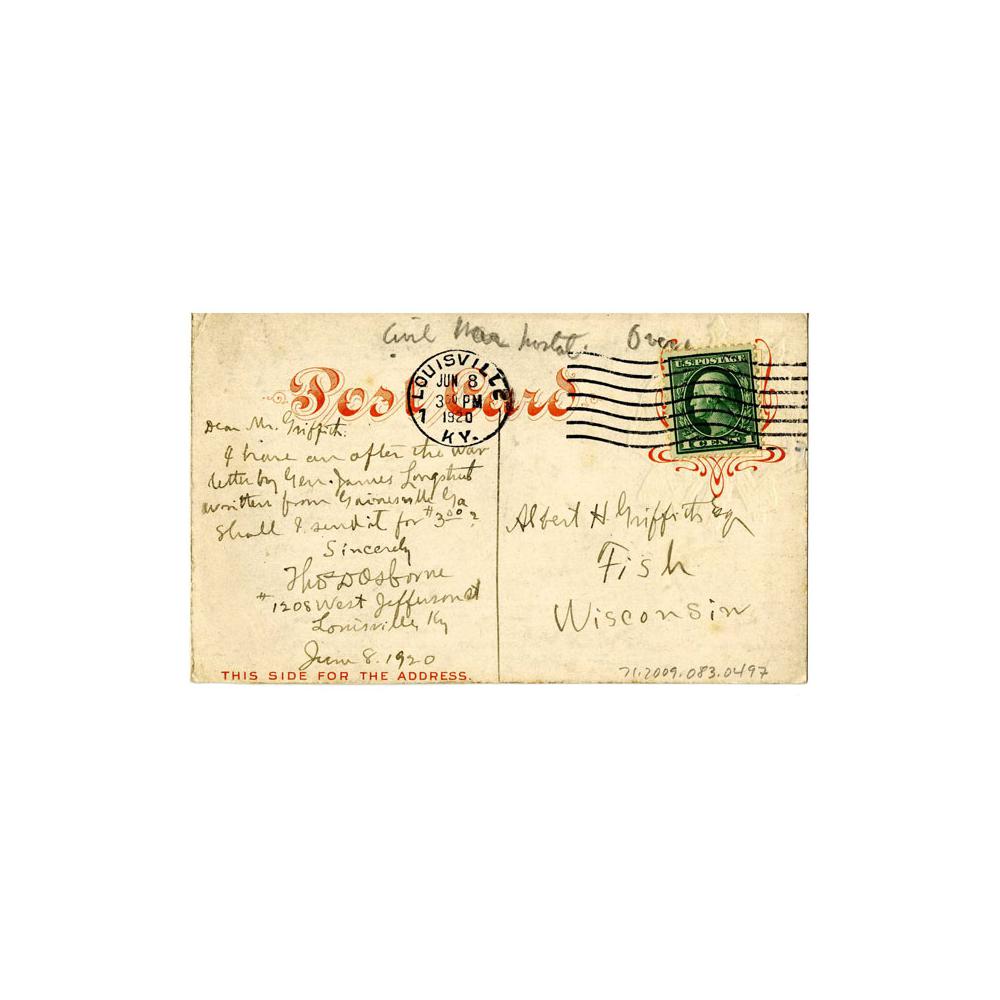 Civil War postal. Over
Post Card
LOUISVILLE
JUN 8
3 PM
1920
7
KY.
U.S. POSTAGE
1 CENT 1
Dear Mr. Griffith.
I have an after the war
letter by Gen. James Longstreet
written from Gainesville Ga
Shall I send it for $3.00?
Sincerely
Thos D Osborne
#1208 West Jefferson st
Louisville, Ky
June 8. 1920
Albert H Griffith Esq
Fish
Wisconsin
THIS SIDE FOR THE ADDRESS.
71.2009.083.0497